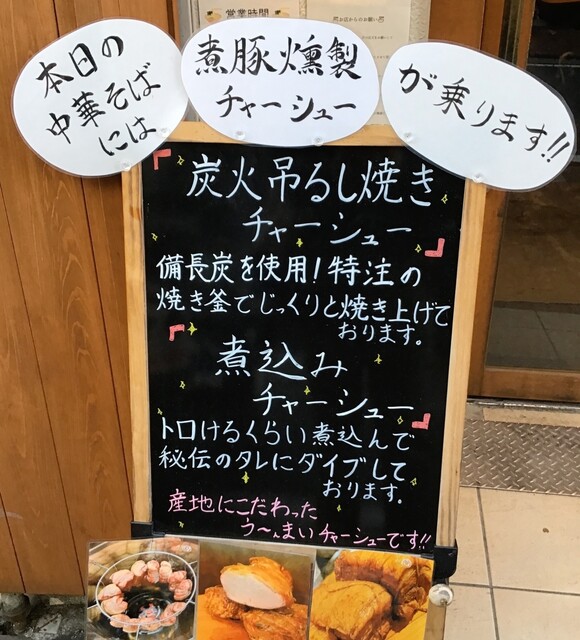 営業時間
本日の
中華そば
には
煮豚燻製
チャーシュー
が乗ります!!
炭火吊るし焼き
チャーシュー
備長炭を使用!特注の
焼き釜でじっくりと焼き上げて
おります。
煮込み
チャーシュー
トロけるくらい煮込んで
秘伝のタレにダイブして
おります。
産地にこだわった
う〜んまいチャーシューです!!